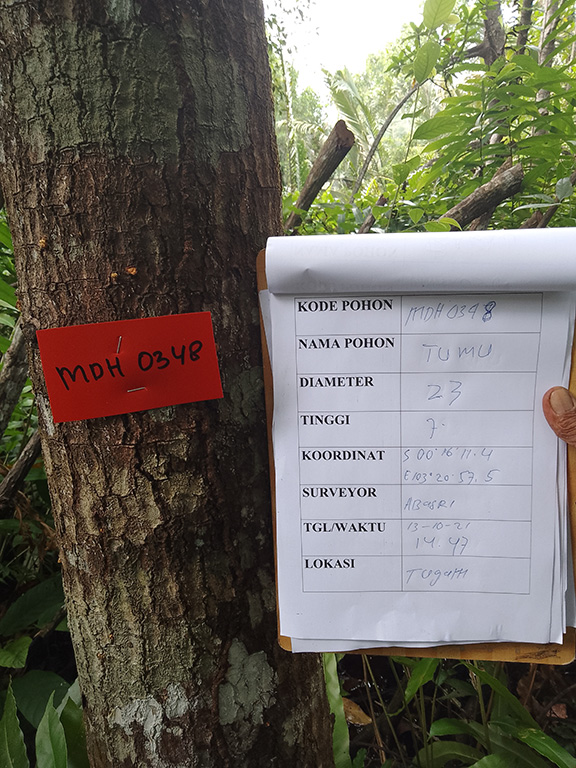 MDH 0348
KODE POHON MDH 0348
NAMA POHON TUMU
DIAMETER 23
TINGGI 7.
KOORDINAT S 00° 16' 11.4
E 103° 20' 57.5
SURVEYOR ABASRI
TGL/WAKTU 13-10-21
14.47
LOKASI